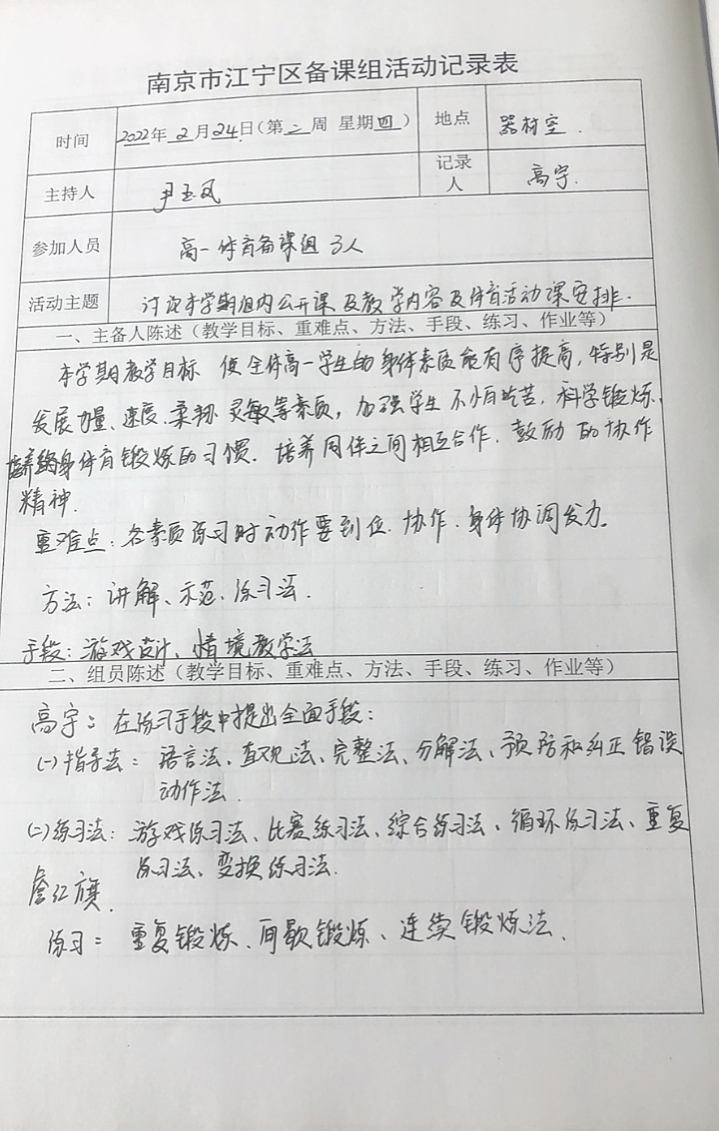 南京市江宁区备课组活动记录表
时间 2022年2月24日(第二周 星期四) 地点 器材室.
主持人 尹玉凤 记录人 高宇.
参加人员 高一体育备课组 3人
活动主题 讨论本学期组内公开课及教学内容及体育活动课安排.
一、主备人陈述(教学目标、重难点、方法、手段、练习、作业等)
本学期教学目标 使全体高一学生的身体素质能有序提高,特别是
发展力量、速度.柔韧.灵敏等素质,加强学生不怕吃苦.科学锻炼、
培养终身体育锻炼的习惯.培养同伴之间相互合作.鼓励的协作
精神.
重难点:各素质练习时动作要到位.协作.身体协调发力。
方法:讲解、示范.练习法.
手段:游戏设计、情境教学法
二、组员陈述(教学目标、重难点、方法、手段、练习、作业等)
高宇:在练习手段中提出全面手段:
(一)指导法:语言法、直观法、完整法、分解法、预防和纠正错误
动作法.
(二)练习法:游戏练习法、比赛练习法、综合练习法、循环练习法、重复
练习法、变换练习法.
詹红旗.
练习:重复锻炼、间歇锻炼、连续锻炼法、